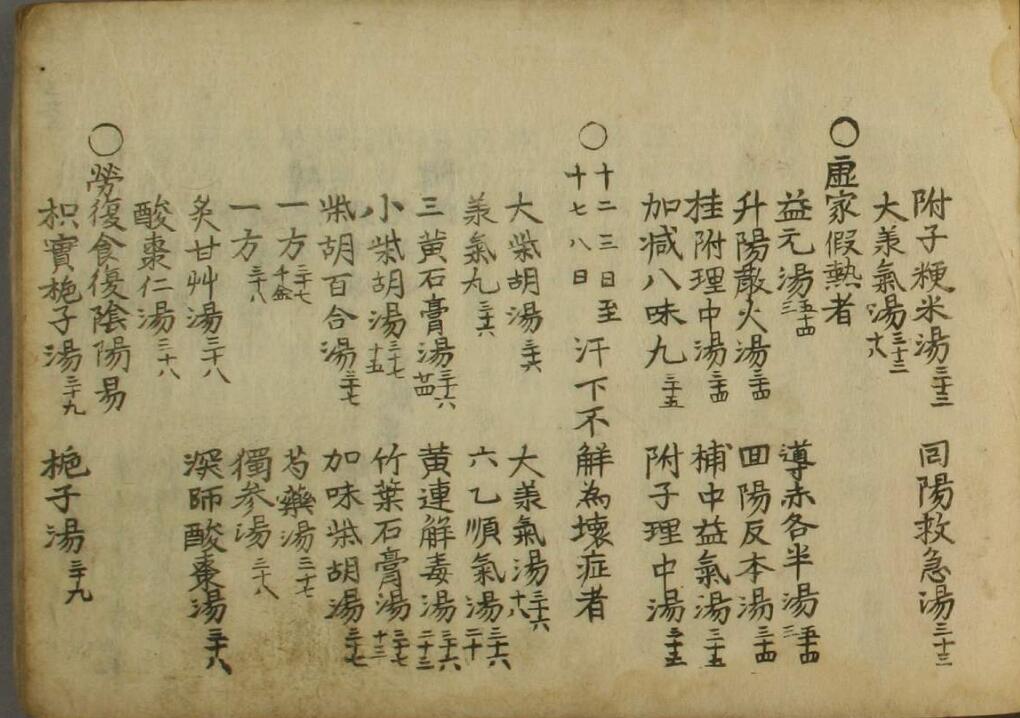 附子粳米湯 三十三 囘陽救急湯 三十三
大羕氣湯 三十三 十八
〇虛家假熱者
益元湯 三十四 三 導赤各半湯 三十四 三
升陽散火湯 三十四 囬陽反本湯 三十四
桂附理中湯 三十四 補中益氣湯 三十五
加减八味丸 三十五 附子理中湯 三十五
〇十二三日至十七八日 汗下不解為壞症者
大柴胡湯 三十六 大羕氣湯 三十六 十八
羕氣丸 三十六 六乙順氣湯 三十六 二十
三黃石膏湯 三十六 廿四 黃連解毒湯 三十六 二十三
小柴胡湯 三十七 十五 竹葉石膏湯 三十七 十三
柴胡百合湯 三十七 加味柴胡湯 三十七
一方 三十七 千金 芍藥湯 三十七
一方 三十八 獨參湯 三十八
炙甘艸湯 三十八 深師酸棗湯 三十八
酸棗仁湯 三十八
〇勞復食復陰陽易
枳實梔子湯 三十九 梔子湯 三十九